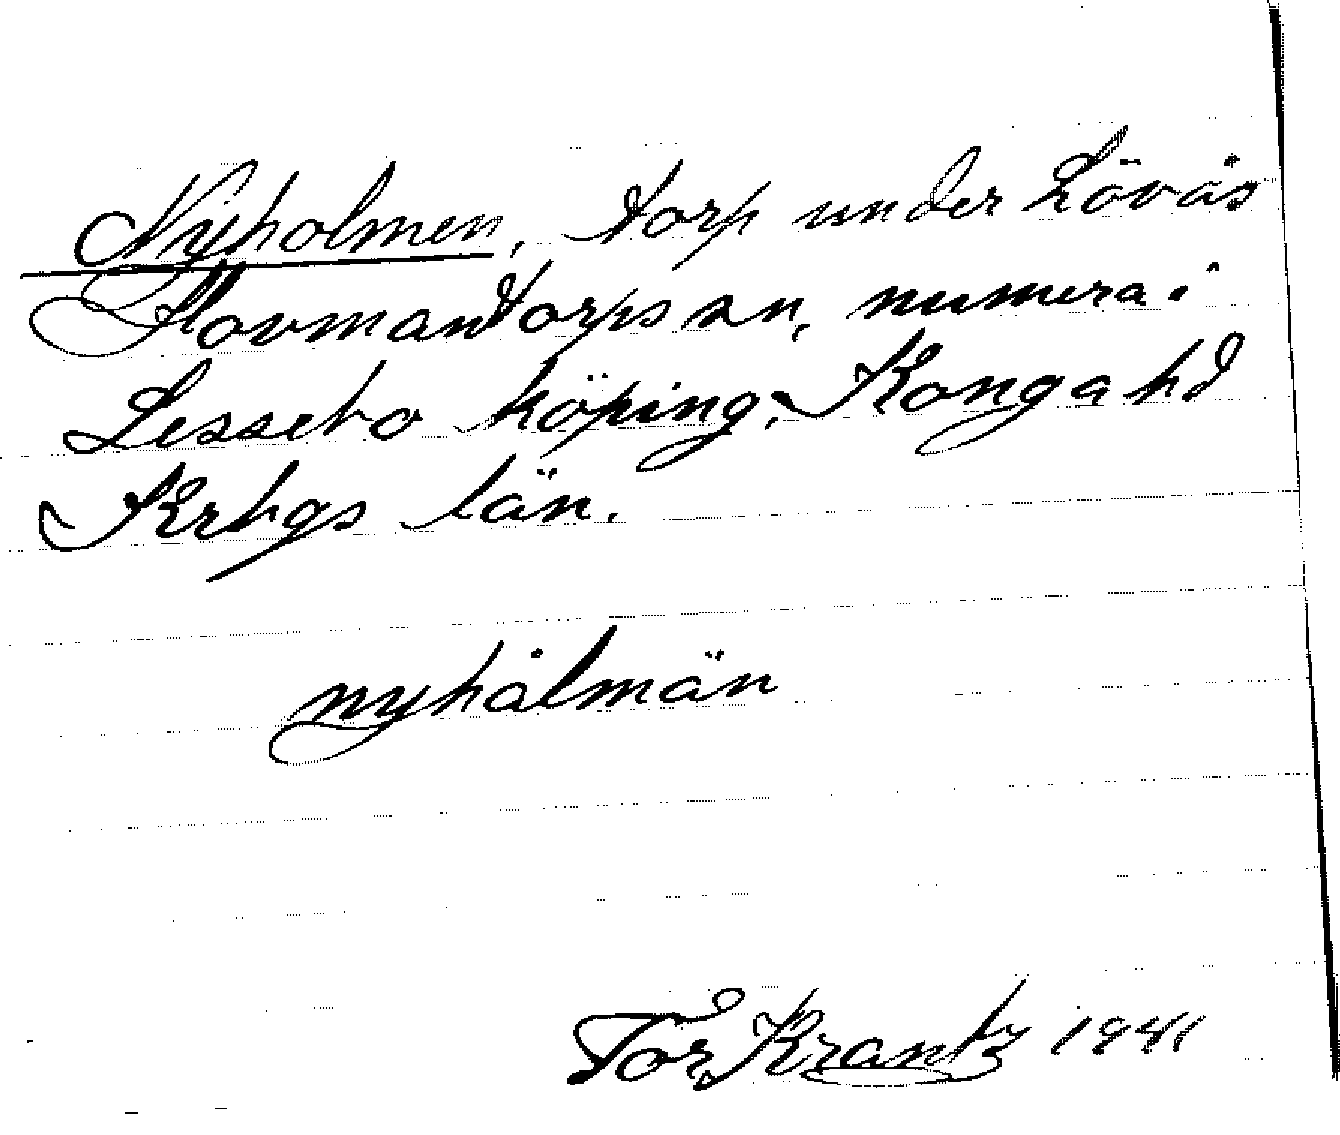 Nyholmen, torp under Lövås
Hovmantorps sn, numera i
Lessebo köping, Konga hd
Krbgs län.
nyhålmän
Tor Krantz 1941